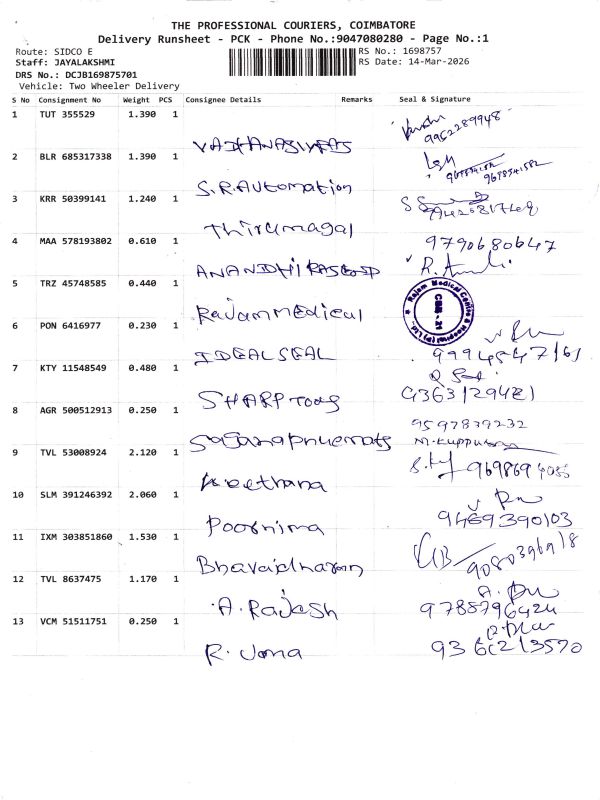 THE PROFESSIONAL COURIERS, COIMBATORE
Delivery Runsheet - PCK - Phone No.:9047080280 - Page No.:1
Route: SIDCO E
RS No.: 1698757
Staff: JAYALAKSHMI
RS Date: 14-Mar-2026
DRS No.: DCJB169875701
Vehicle: Two Wheeler Delivery
S No Consignment No Weight PCS Consignee Details Remarks Seal & Signature
1 TUT 355529 1.390 1
9952289948
2 BLR 685317338 1.390 1
S.R.Automation
9698541582
3 KRR 50399141 1.240 1
Thirumagal
4 MAA 578193802 0.610 1
9790680647
5 TRZ 45748585 0.440 1
Rajam Medical
Rajam Medical Centre & Hospital (P) Ltd.
CBE-21
6 PON 6416977 0.230 1
IDEAL SEAL
7 KTY 11548549 0.480 1
SHARP Tools
8 AGR 500512913 0.250 1
9597839232
9 TVL 53008924 2.120 1
Keethana
10 SLM 391246392 2.060 1
Poornima
9489390103
11 IXM 303851860 1.530 1
9080396918
12 TVL 8637475 1.170 1
A. Rajesh
9788796424
13 VCM 51511751 0.250 1
R. Uma
9366213570